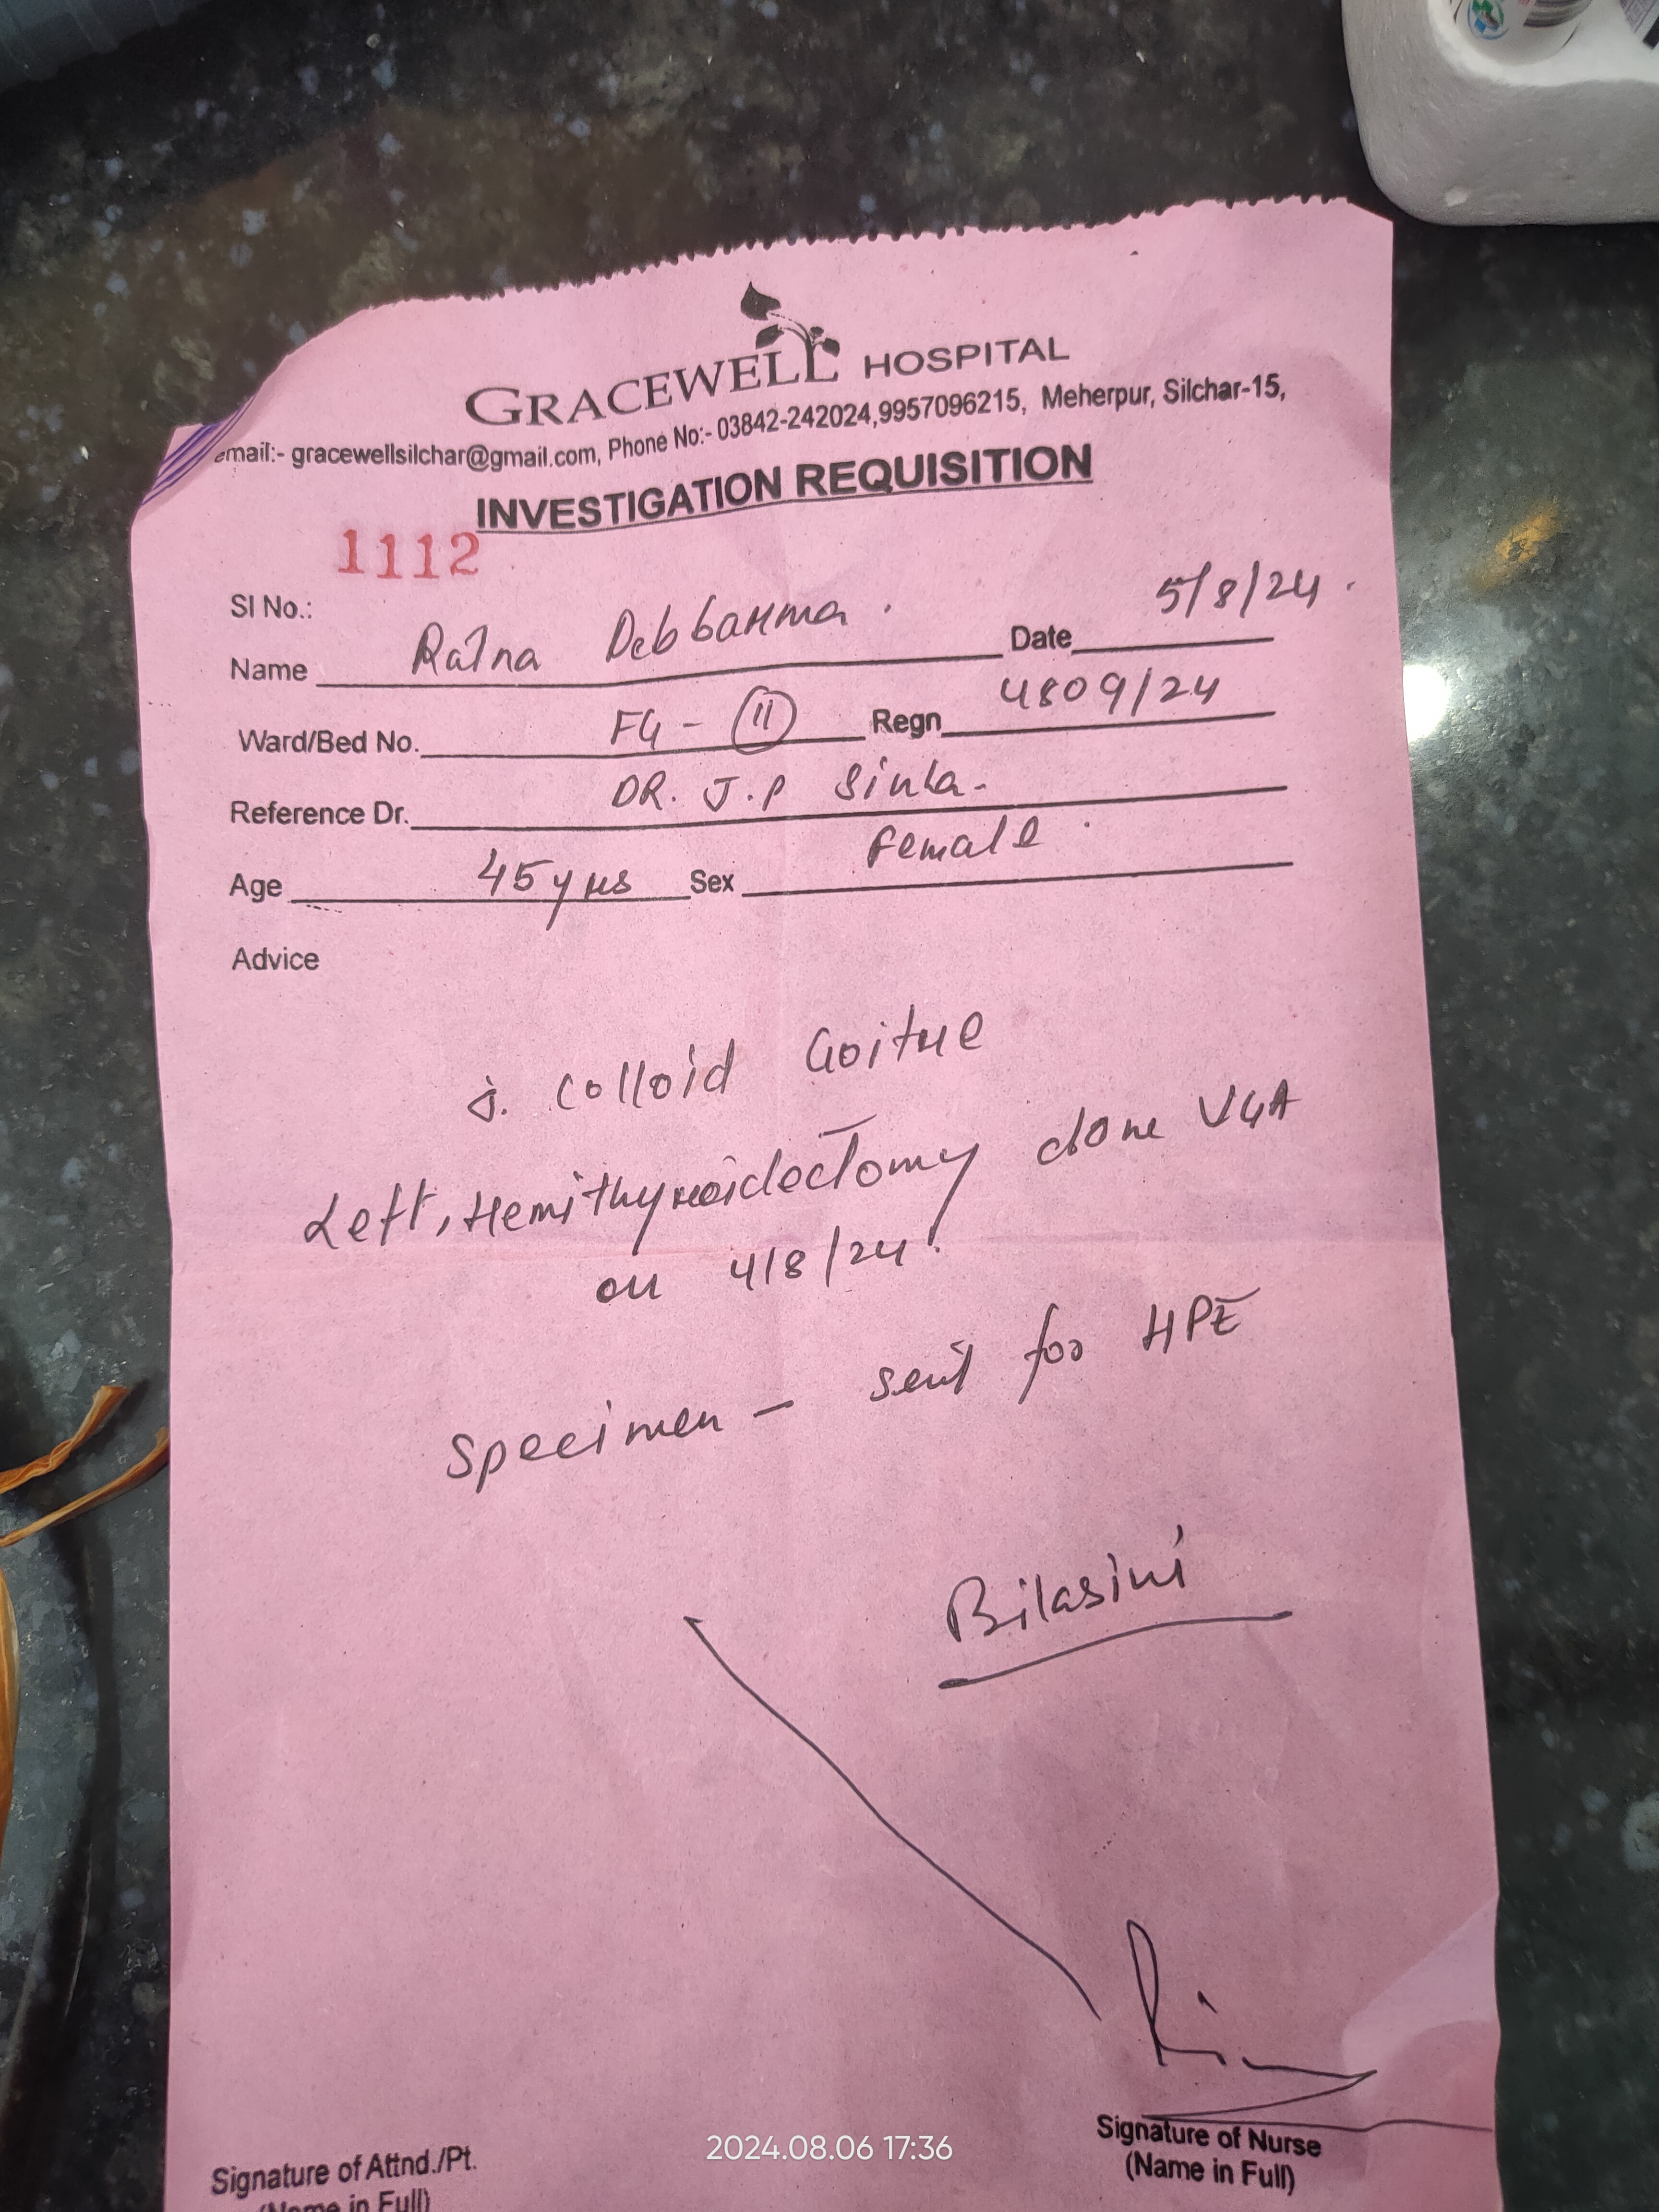 GRACEWELL HOSPITAL
email:- gracewellsilchar@gmail.com, Phone No:- 03842-242024,9957096215, Meherpur, Silchar-15,
INVESTIGATION REQUISITION
1112
Sl No.:
Name Ratna Debbarma. Date 5/8/24.
Ward/Bed No. FG - 11 Regn 4809/24
Reference Dr. DR. J.P Sinha.
Age 45 yrs Sex Female.
Advice
Colloid Goitre
Left, Hemithyroidectomy done VGA
on 4/8/24.
Specimen - sent for HPE
Bilasini
Signature of Attnd./Pt.
(Name in Full)
Signature of Nurse
(Name in Full)
2024.08.06 17:36